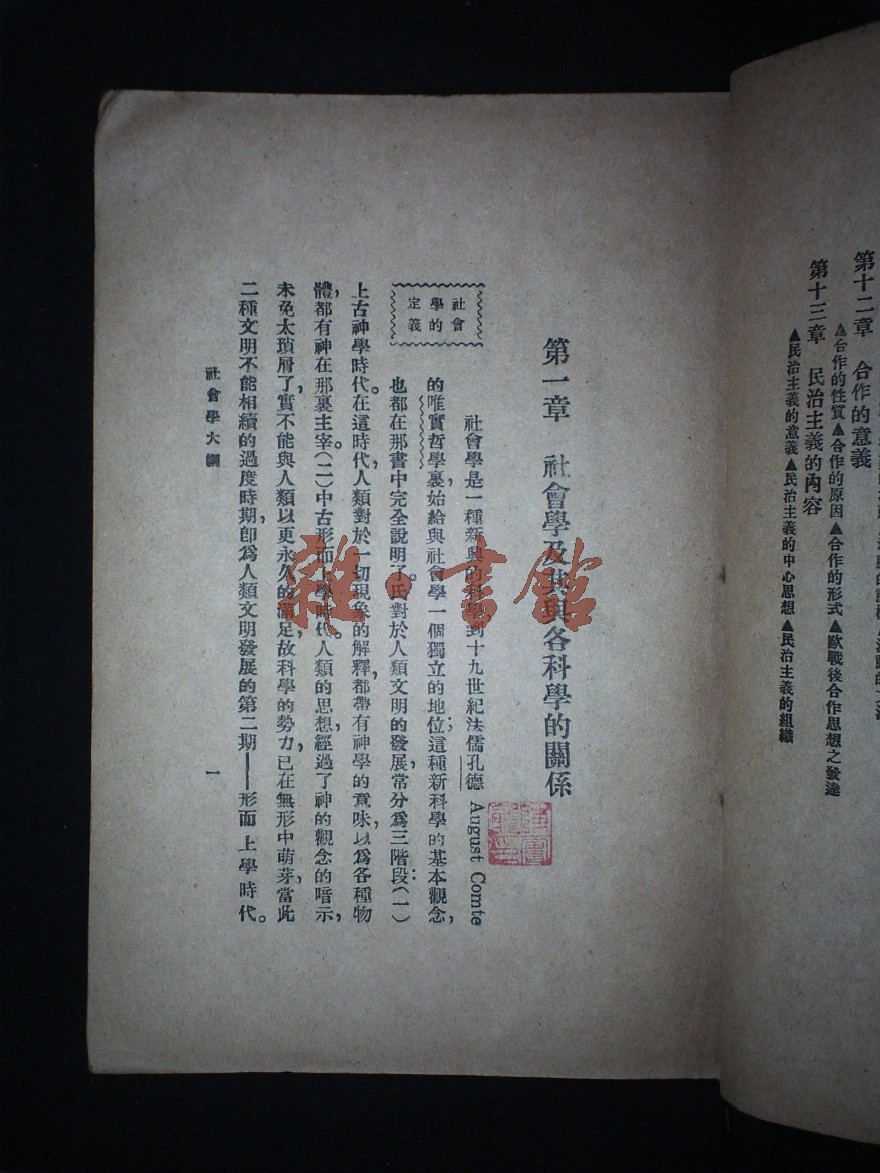 第十二章　合作的意義
▲合作的性質▲合作的原因▲合作的形式▲歐戰後合作思想之發達
第十三章　民治主義的內容
▲民治主義的意義▲民治主義的中心思想▲民治主義的組織
第一章　社會學及其與各科學的關係
社會
學的
定義
社會學是一種新興的科學到十九世紀法儒孔德 August Comte
的唯實哲學裏，始給與社會學一個獨立的地位；這種新科學的基本觀念，
也都在那書中完全說明了。氏對於人類文明的發展，常分爲三階段：(一)
上古神學時代。在這時代人類對於一切現象的解釋都帶有神學的意味，以爲各種物
體，都有神在那裏主宰。(二)中古形而上學時代。人類的思想，經過了神的觀念的暗示，
未免太瑣屑了，實不能與人類以更永久的滿足，故科學的勢力，已在無形中萌芽，當此
二種文明不能相續的過度時期，卽爲人類文明發展的第二期——形而上學時代。
社會學大綱
一
雜·書館